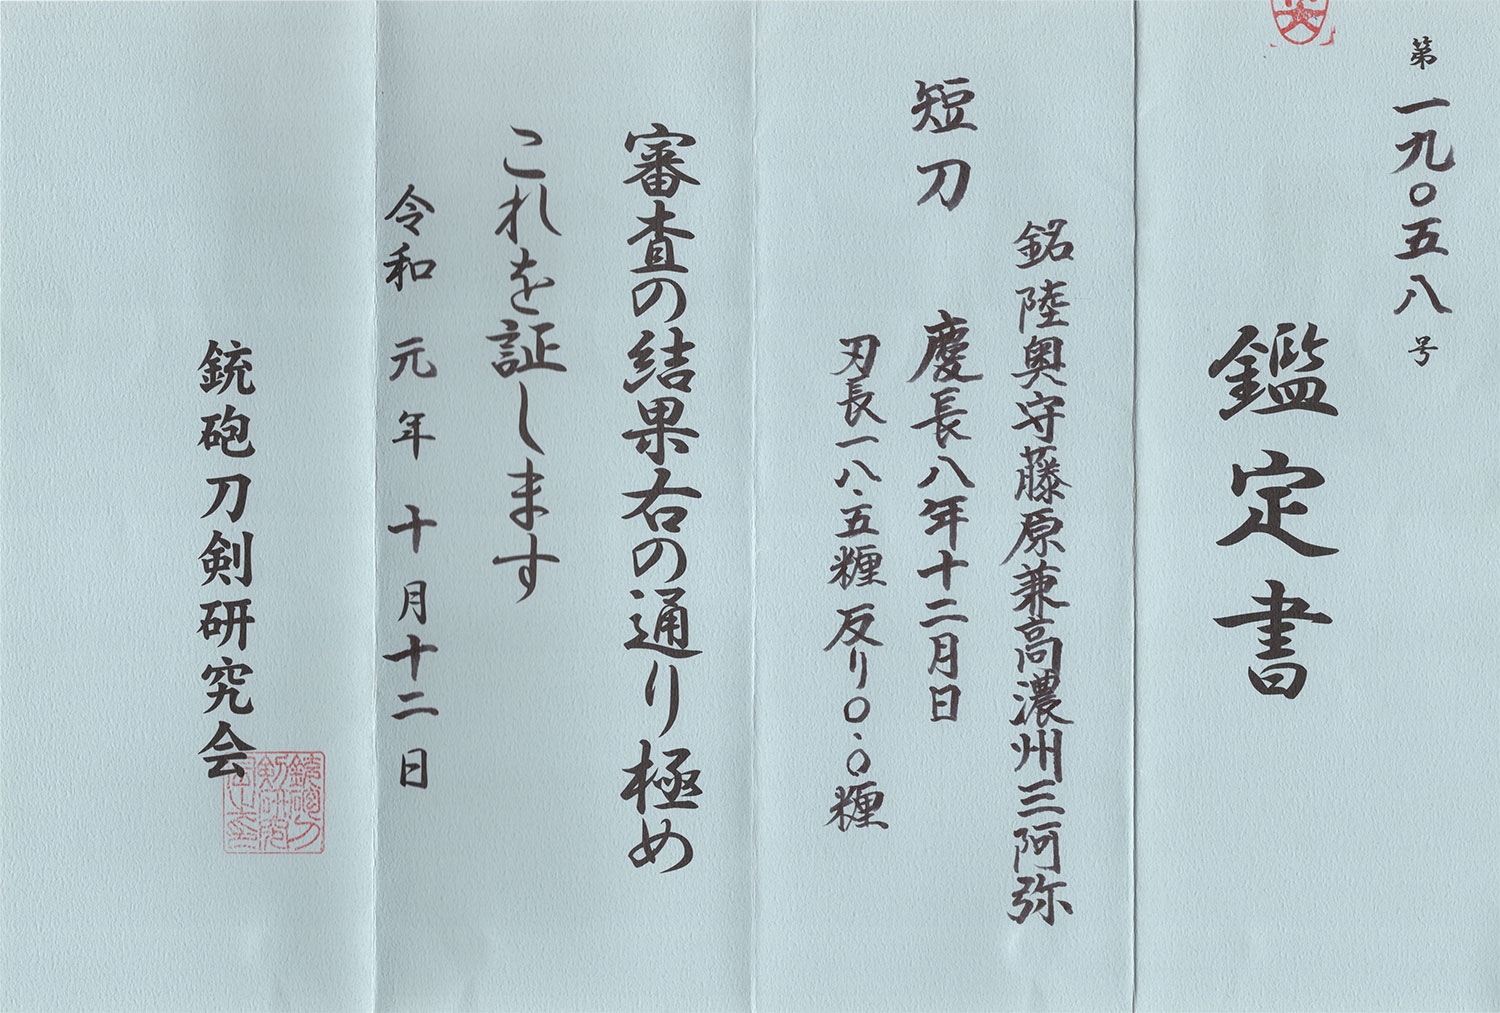 第一九〇五八号
鑑定書
銘陸奥守藤原兼高濃州三阿弥
短刀
慶長八年十二月日
刃長一八・五糎 反り〇・〇糎
審査の結果右の通り極め
これを証します
令和元年十月十二日
銃砲刀剣研究会